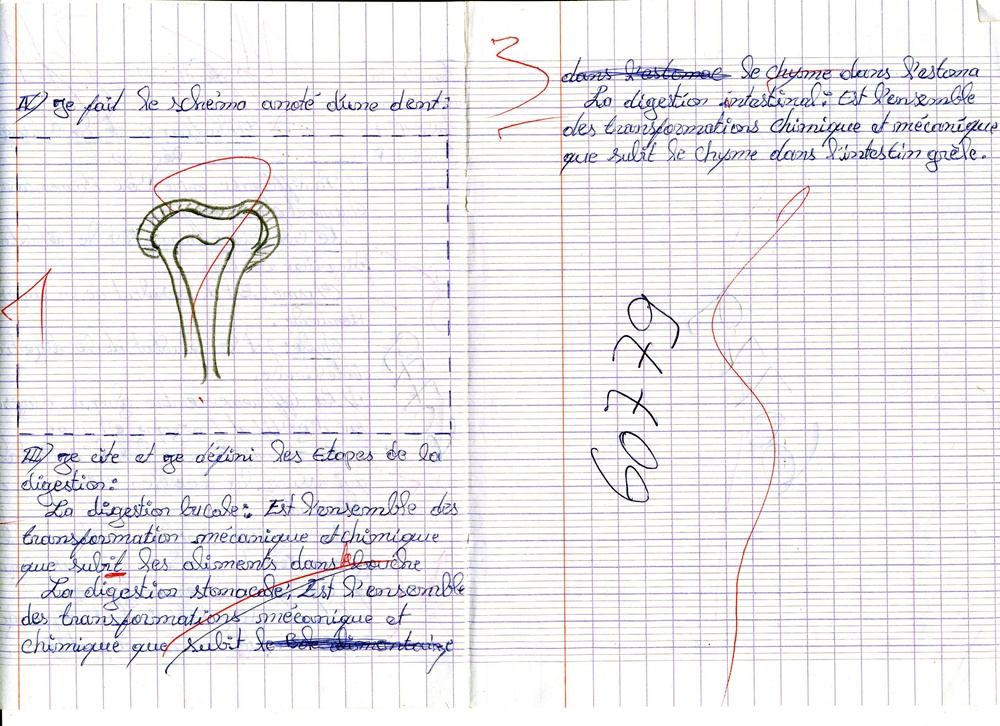 IV) ge fait le schéma anoté d'une dent:
1
III) ge cite et ge défini les Etapes de la
digestion:
La digestion bucale: Est l'ensemble des
transformation mécanique et chimique
que subit les aliments dans la bouche
La digestion stomacale: Est l'ensemble
des transformations mécanique et
chimique que subit le bole alimentaire
dans l'estomac le chyme dans l'estoma
La digestion intestinal: Est l'ensemble
des transformations chimique et mécanique
que subit le chyme dans l'intestin grèle.
3
60779